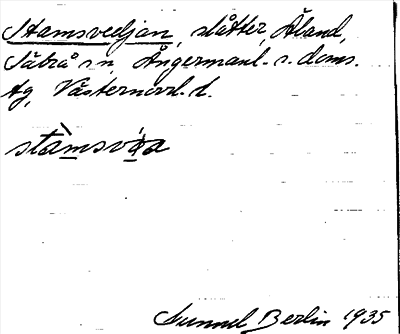 Stamsvedjan, slåtter, Åland,
Säbrå sn, Ångermanl. s. doms.
tg, Västernorrl. l.
Gunnel Berlin 1935